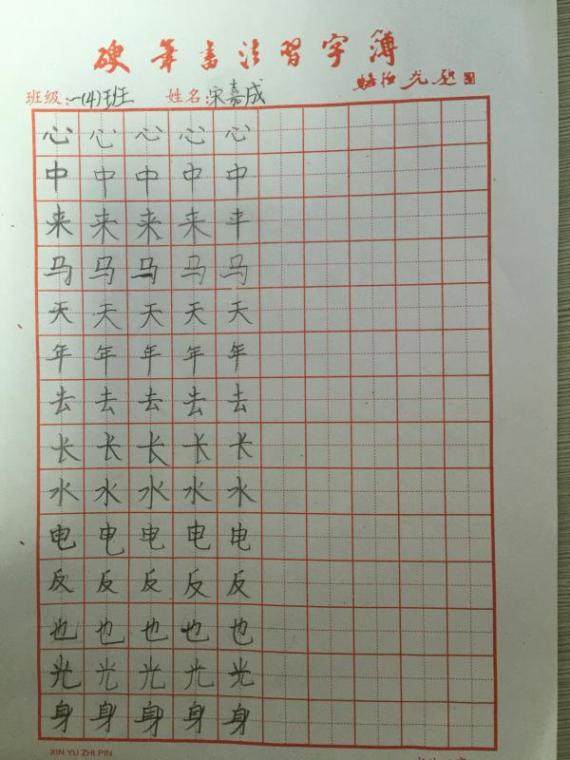 硬筆書法習字簿
班级:一(4)班 姓名:宋嘉成
心心心心心
中中中中中
来来来来丰
马马马马马
天天天天天
年年年年年
去去去去去
长长长长长
水水水水水
电电电电电
反反反反反
也也也也也
光光光光光
身身身身身
XIN YU ZHI PIN